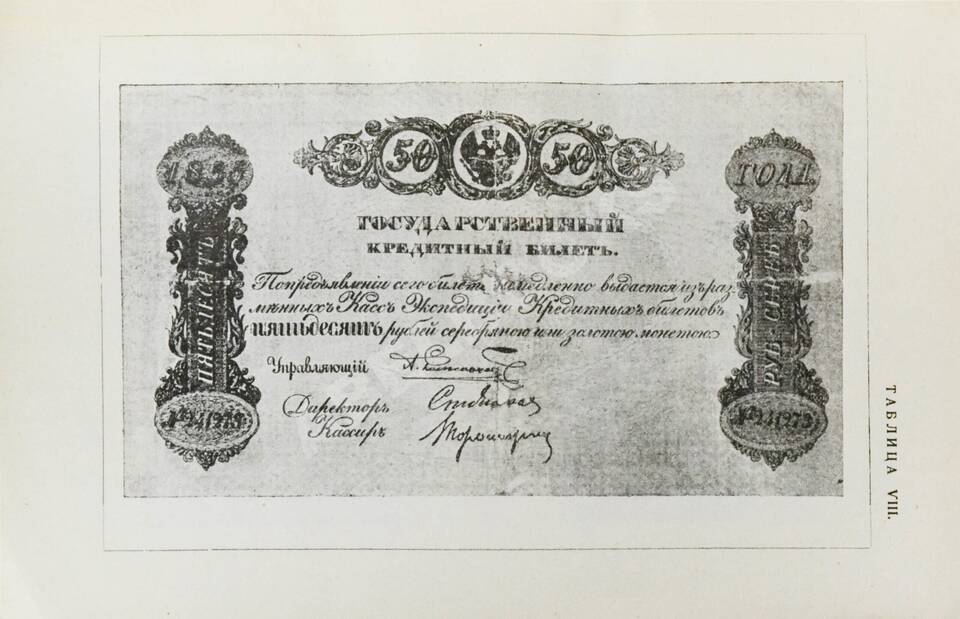 50 50
ГОДА
ГОСУДАРСТВЕННЫЙ
КРЕДИТНЫЙ БИЛЕТЪ.
По предъявленіи сего билета немедленно выдается изъ раз-
мѣнныхъ Кассъ Экспедиціи Кредитныхъ билетовъ
пятьдесятъ рублей серебряною или золотою монетою
Управляющій
Директоръ
Кассиръ
ПЯТЬДЕСЯТЪ
РУБ. СЕРЕБ.
ТАБЛИЦА VIII.